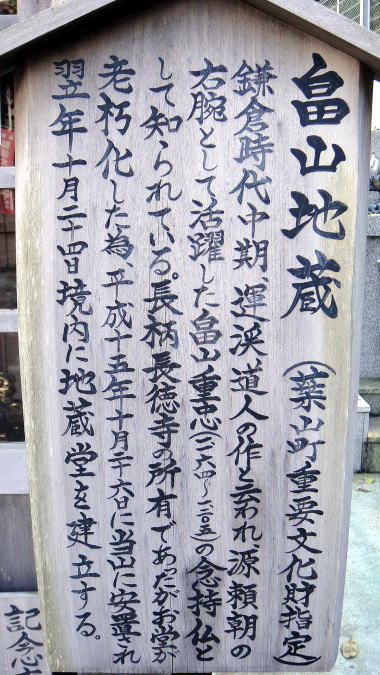 畠山地蔵(葉山町重要文化財指定)
鎌倉時代中期、運渓道人の作と云われ、源頼朝の
右腕として活躍した畠山重忠(一一六四～一二〇五)の念持仏と
して知られている。長柄長徳寺の所有であったがお堂が
老朽化した為、平成十五年十月二十六日に当山に安置され
翌年十月二十四日境内に地蔵堂を建立する。
記念